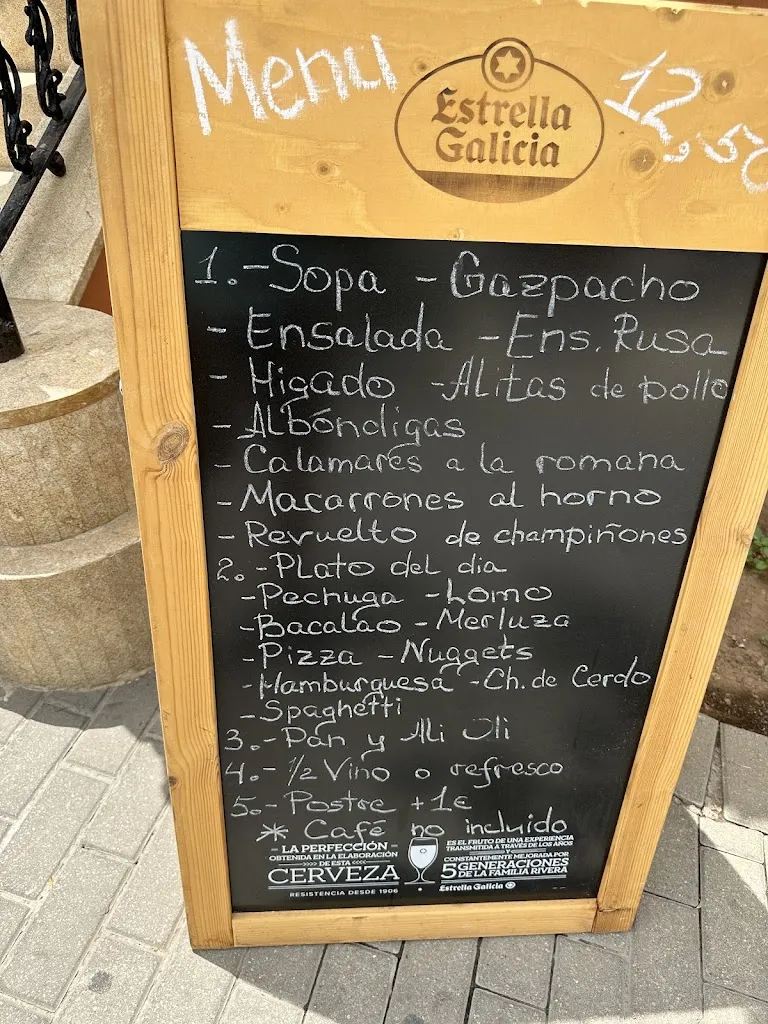 Menu
Estrella
Galicia
12,50
1.- Sopa - Gazpacho
- Ensalada - Ens. Rusa
- Higado - Alitas de pollo
- Albóndigas
- Calamares a la romana
- Macarrones al horno
- Revuelto de champiñones
2.- Plato del dia
- Pechuga - Lomo
- Bacalao - Merluza
- Pizza - Nuggets
- Hamburguesa - Ch. de Cerdo
- Spaghetti
3.- Pan y Ali Oli
4.- 1/2 Vino o refresco
5.- Postre + 1€
* Café no incluido
- LA PERFECCIÓN -
OBTENIDA EN LA ELABORACIÓN
>>>> DE ESTA <<<<
CERVEZA
RESISTENCIA DESDE 1906
ES EL FRUTO DE UNA EXPERIENCIA
TRANSMITIDA A TRAVÉS DE LOS AÑOS
Y
CONSTANTEMENTE MEJORADA POR
5 GENERACIONES
DE LA FAMILIA RIVERA
Estrella Galicia